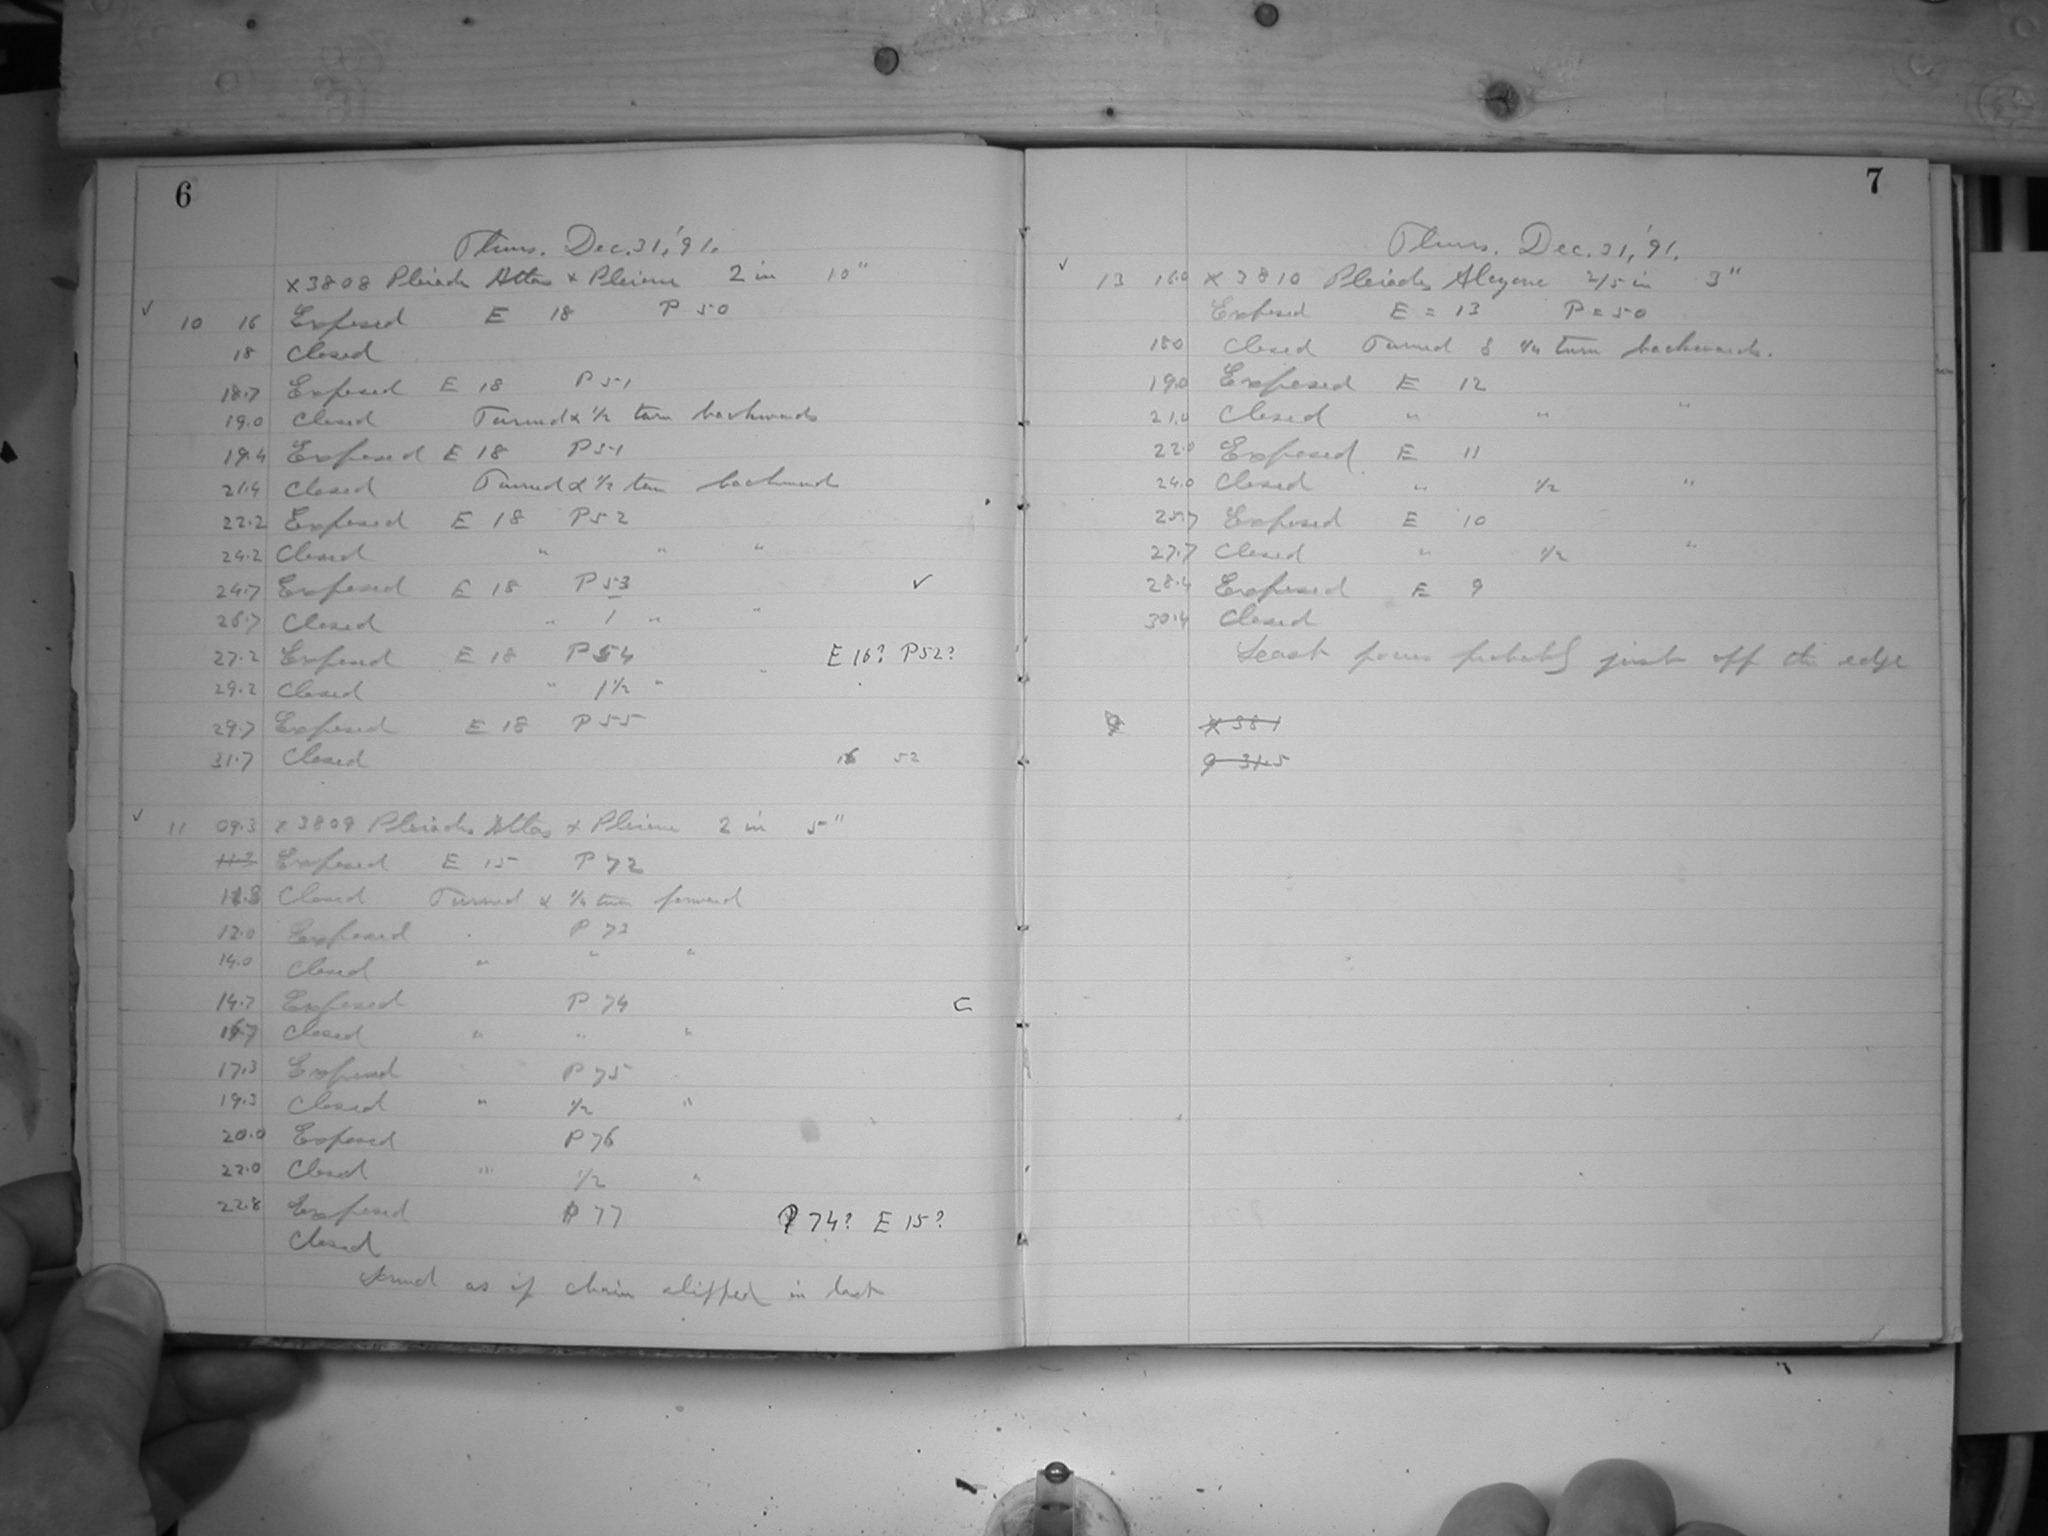 6
Thurs. Dec. 31, '91.
X3808 Pleiades Atlas & Pleione 2 in 10"
✓ 10 16 Exposed E 18 P 50
18 Closed
18.7 Exposed E 18 P 51
19.0 Closed Turned α 1/2 turn backwards
19.4 Exposed E 18 P 51
21.4 Closed Turned α 1/2 turn backwards
22.2 Exposed E 18 P 52
24.2 Closed " " "
24.7 Exposed E 18 P 53 ✓
26.7 Closed " 1 " "
27.2 Exposed E 18 P 54 E 16? P 52?
29.2 Closed " 1 1/2 " "
29.7 Exposed E 18 P 55
31.7 Closed 16 52
✓ 11 09.3 X3809 Pleiades Atlas & Pleione 2 in 5"
11.3 Exposed E 15 P 72
11.3 Closed Turned α 1/4 turn forward
12.0 Exposed P 73
14.0 Closed " " "
14.7 Exposed P 74 C
16.7 Closed " " "
17.3 Exposed P 75
19.3 Closed " 1/2 "
20.0 Exposed P 76
22.0 Closed " 1/2 "
22.8 Exposed P 77 P 74? E 15?
Closed
as if chain slipped in last
7
Thurs. Dec. 31, '91.
✓ 13 16.0 X3810 Pleiades Alcyone 2/5 in 3"
Exposed E = 13 P = 50
18.0 Closed Turned δ 1/4 turn backwards.
19.0 Exposed E 12
21.0 Closed " " "
22.0 Exposed E 11
24.0 Closed " 1/2 "
25.7 Exposed E 10
27.7 Closed " 1/2 "
28.4 Exposed E 9
30.4 Closed
Least focus probably just off the edge
X 381
9 31.5